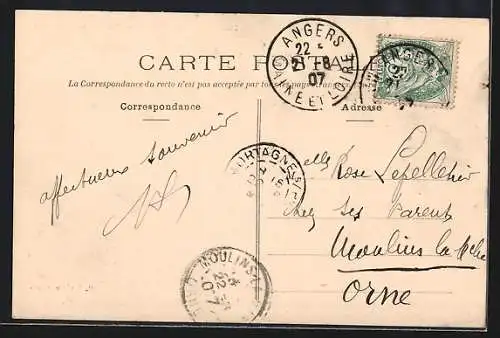 CARTE POSTALE
La Correspondance du recto n'est pas acceptée par tous les pays
Correspondance
Adresse
ANGERS
22
21-8
07
MAINE ET LOIRE
ANGERS
MORTAGNE
MOULINS
22
07
affectueux souvenir
elle Rose Lepelletier
chez ses parents
Moulins la Mche
Orne